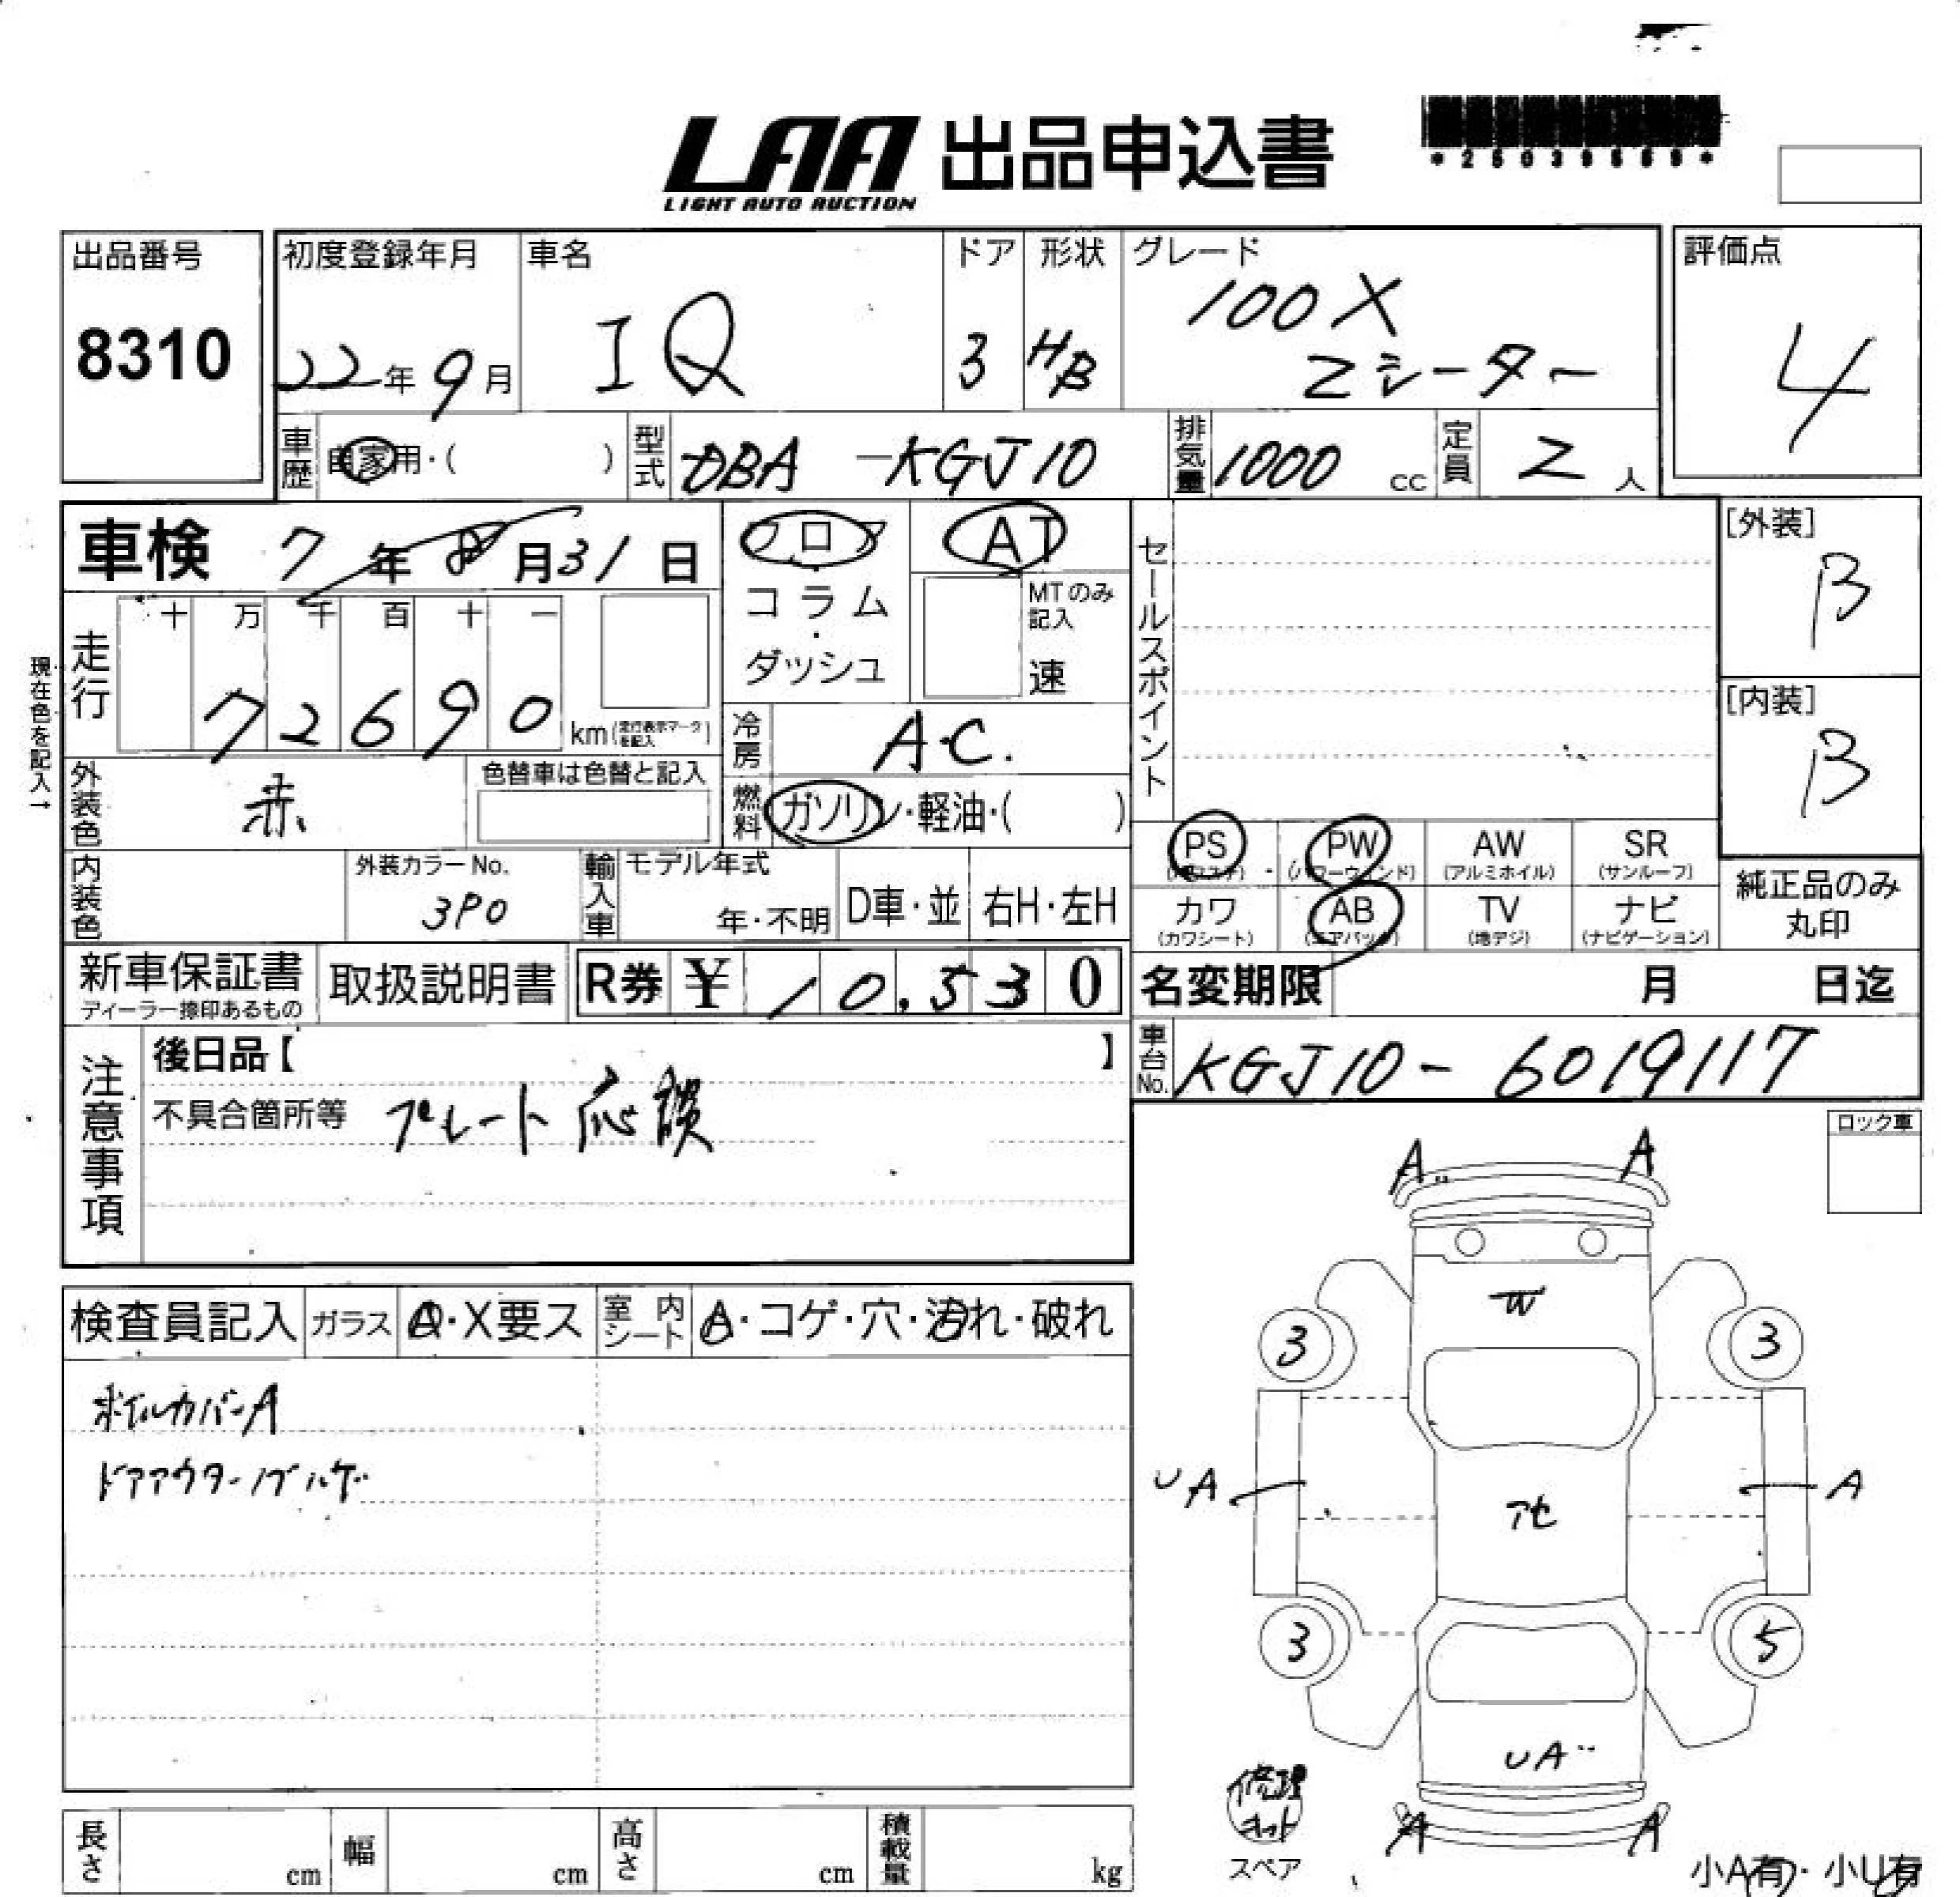 LAA 出品申込書
LIGHT AUTO AUCTION
出品番号
8310
初度登録年月
22年9月
車名
IQ
ドア
3
形状
HB
グレード
100X
2シーター
評価点
4
車歴 自家用・( )
型式 DBA-KGJ10
排気量 1000 cc
定員 2人
車検 7年8月31日
フロア
コラム
・
ダッシュ
AT
MTのみ
記入
速
セールスポイント
[外装]
B
[内装]
B
現在色を記入→
走行
十 万 千 百 十 一
7 2 6 9 0 km(走行表示マークを記入)
冷房 A.C.
外装色 赤
色替車は色替と記入
燃料 ガソリン・軽油・( )
内装色
外装カラーNo.
3P0
輸入車
モデル年式
年・不明
D車・並
右H・左H
PS
PW
(パワーウィンド)
AW
(アルミホイル)
SR
(サンルーフ)
カワ
(カワシート)
AB
(エアバック)
TV
(地デジ)
ナビ
(ナビゲーション)
純正品のみ
丸印
新車保証書
ディーラー捺印あるもの
取扱説明書
R券 ¥ 10,530
名変期限 月 日迄
車台No. KGJ10-6019117
注意事項
後日品【 】
不具合箇所等 プレート応談
ロック車
検査員記入
ガラス A・X要ス
室内シート A・コゲ・穴・汚れ・破れ
ホイルカバーA
ドアアウターノブハゲ
A A
W
3 3
UA A
アセ
3 5
UA
A A
修理
キット
スペア
小A有・小U有
長さ cm
幅 cm
高さ cm
積載量 kg